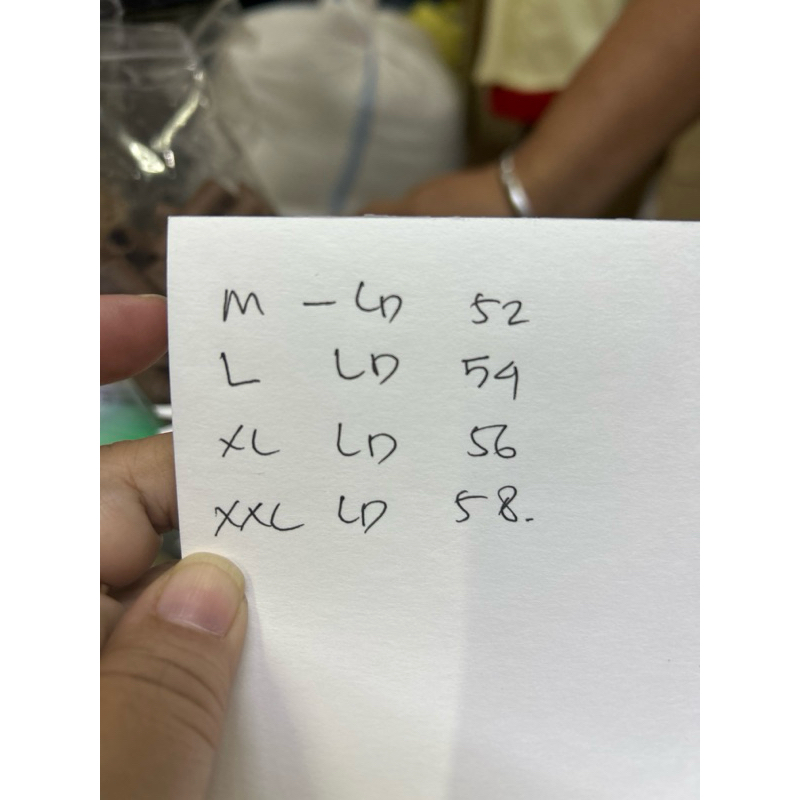 M - LD 52
L LD 54
XL LD 56
XXL LD 58.